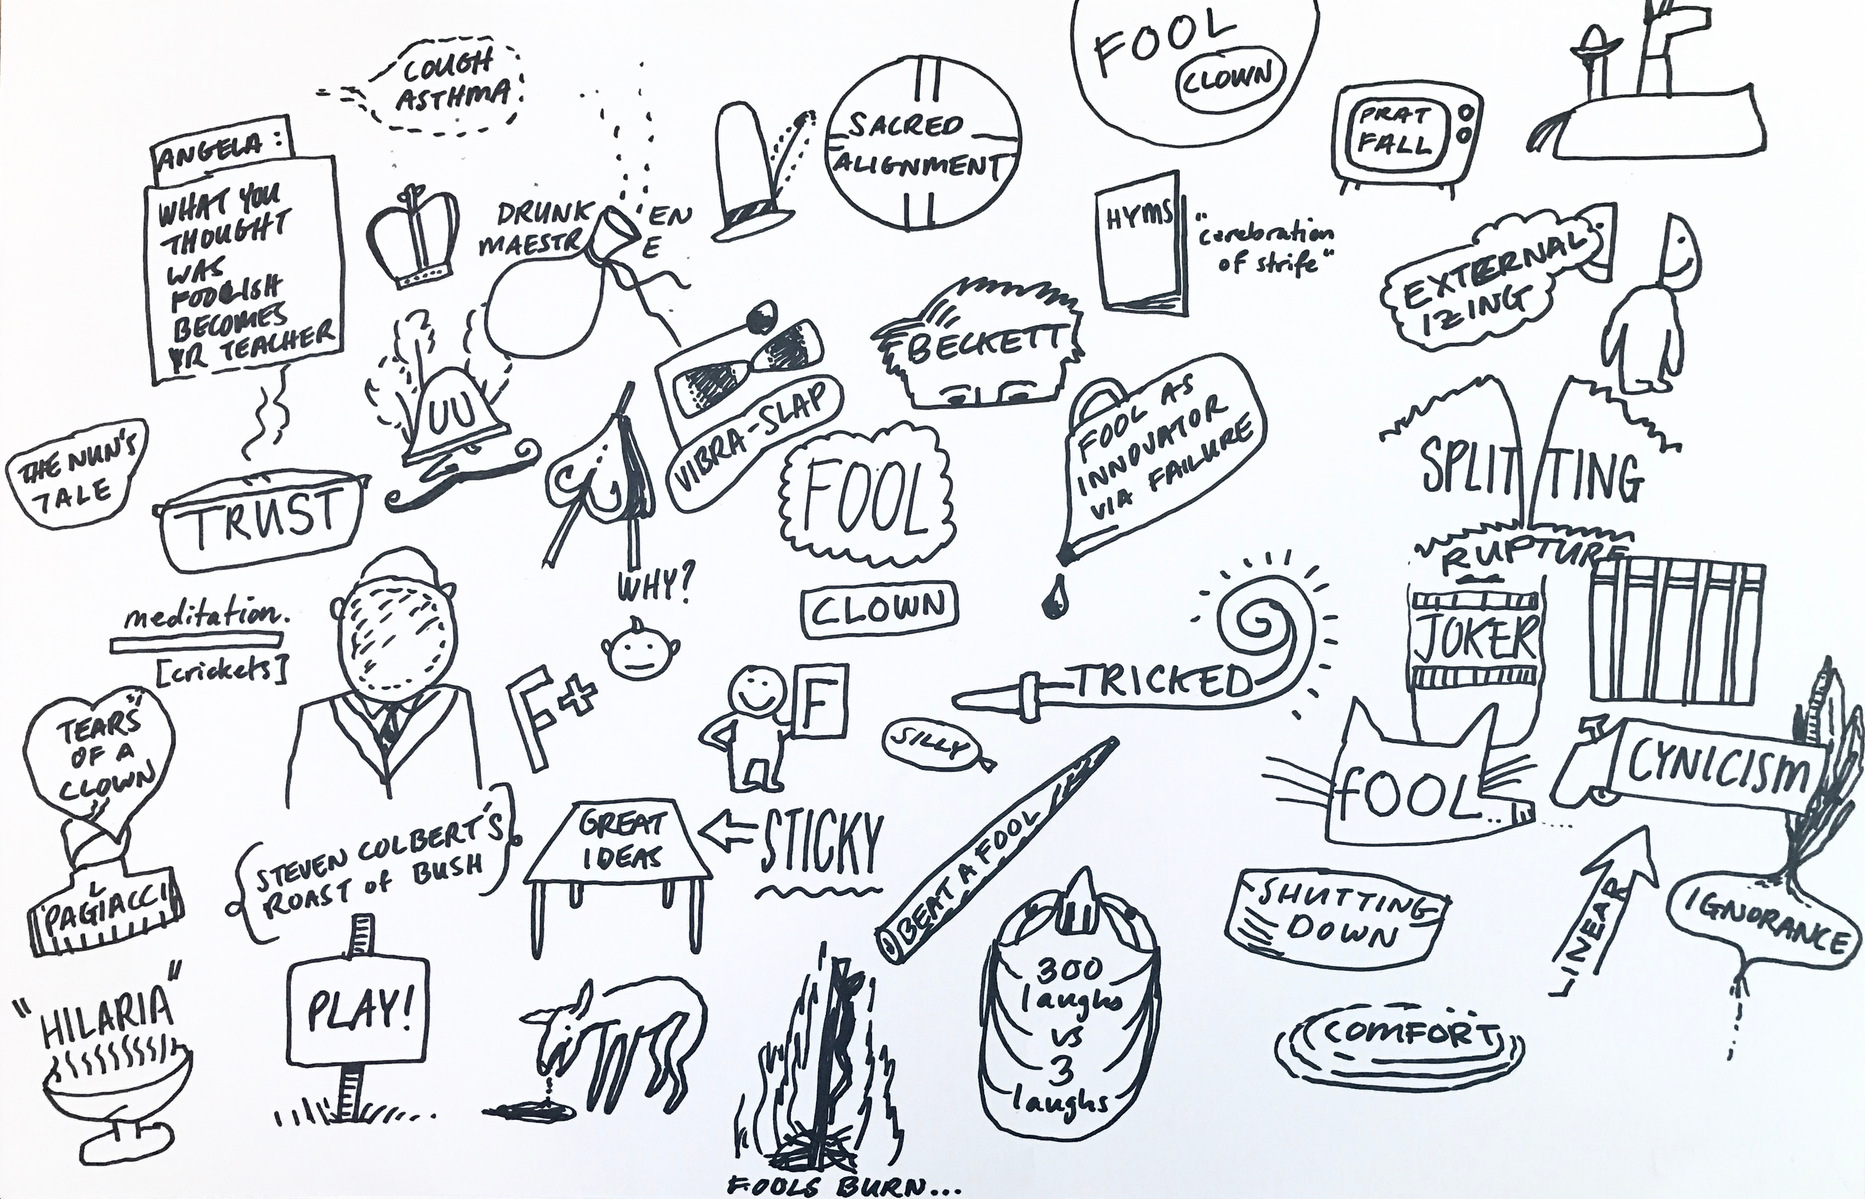 COUGH
ASTHMA
ANGELA:
WHAT YOU
THOUGHT
WAS
FOOLISH
BECOMES
YR TEACHER
DRUNK EN
MAESTR E
SACRED
ALIGNMENT
FOOL
CLOWN
PRAT
FALL
HYMS
"cerebration
of strife"
EXTERNAL
IZING
BECKETT
VIBRA-SLAP
FOOL AS
INNOVATOR
VIA FAILURE
SPLITTING
RUPTURE
THE NUN'S
TALE
TRUST
FOOL
CLOWN
WHY?
meditation.
[crickets]
TRICKED
JOKER
F+
F
SILLY
TEARS
OF A
CLOWN
PAGIACCI
STEVEN COLBERT'S
ROAST OF BUSH
GREAT
IDEAS
STICKY
BEAT A FOOL
FOOL..
CYNICISM
SHUTTING
DOWN
LINEAR
IGNORANCE
"HILARIA"
PLAY!
300
laughs
vs
3
laughs
COMFORT
FOOLS BURN...